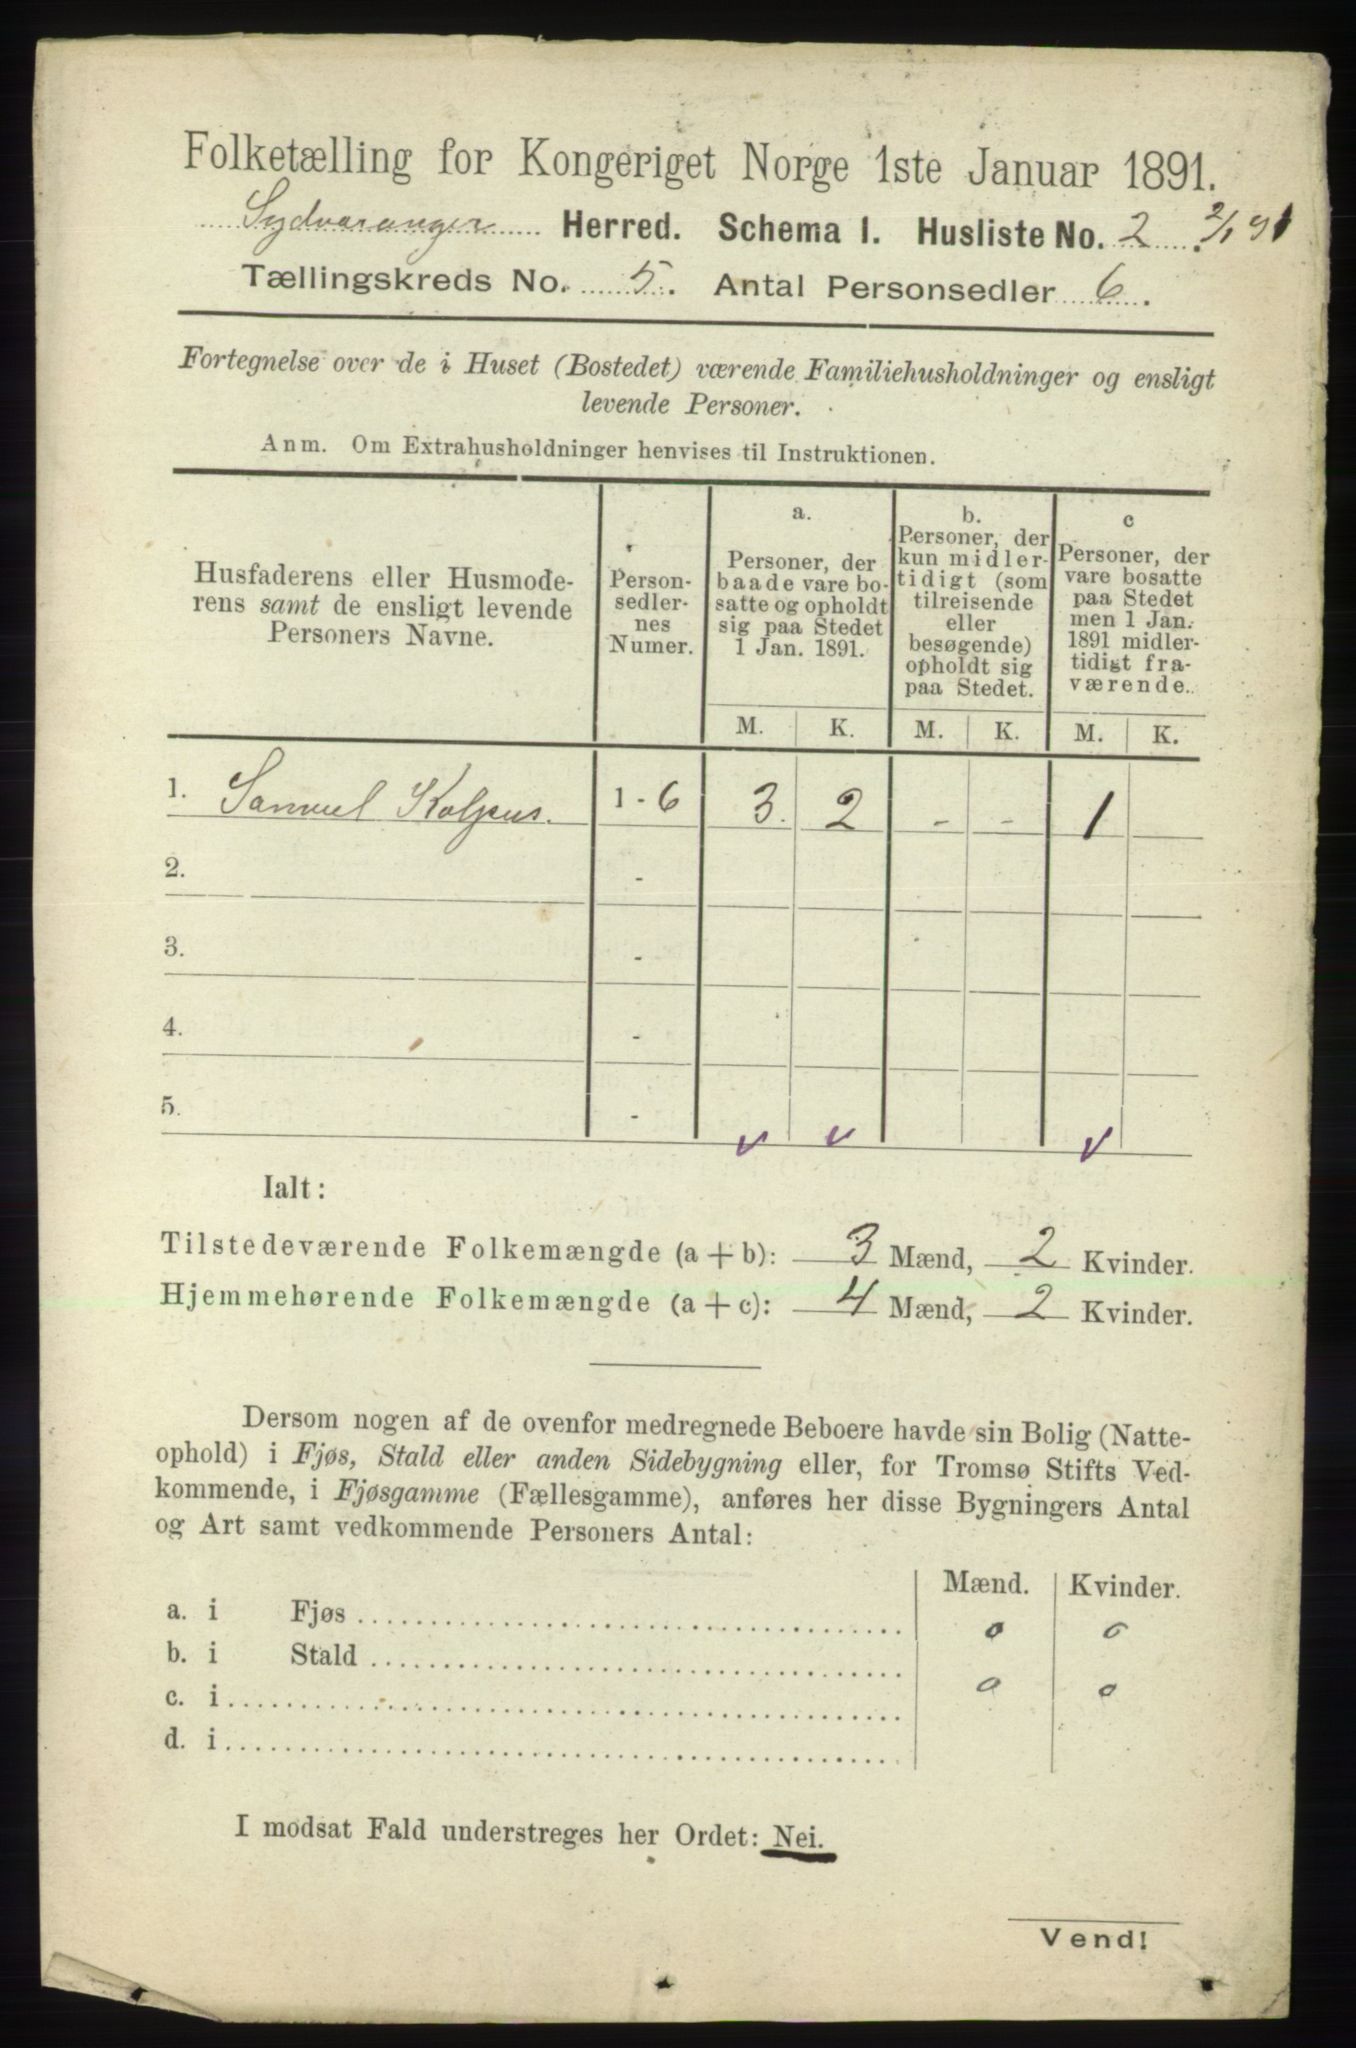 Folketælling for Kongeriget Norge 1ste Januar 1891.
Sydvaranger Herred. Schema I. Husliste No. 2. 2/1 91
Tællingskreds No. 5. Antal Personsedler 6.
Fortegnelse over de i Huset (Bostedet) værende Familiehusholdninger og ensligt
levende Personer.
Anm. Om Extrahusholdninger henvises til Instruktionen.
Husfaderens eller Husmode-
rens samt de ensligt levende
Personers Navne.
Person-
sedler-
nes
Numer.
a.
Personer, der
baade vare bo-
satte og opholdt
sig paa Stedet
1 Jan. 1891.
b.
Personer, der
kun midler-
tidigt (som
tilreisende
eller
besøgende)
opholdt sig
paa Stedet.
c
Personer, der
vare bosatte
paa Stedet
men 1 Jan.
1891 midler-
tidigt fra-
værende.
M. K. M. K. M. K.
1. Samuel 1-6 3. 2 - - 1
2. -
3. -
4. -
5. -
Ialt:
Tilstedeværende Folkemængde (a + b): 3 Mænd, 2 Kvinder.
Hjemmehørende Folkemængde (a + c): 4 Mænd, 2 Kvinder.
Dersom nogen af de ovenfor medregnede Beboere havde sin Bolig (Natte-
ophold) i Fjøs, Stald eller anden Sidebygning eller, for Tromsø Stifts Ved-
kommende, i Fjøsgamme (Fællesgamme), anføres her disse Bygningers Antal
og Art samt vedkommende Personers Antal:
Mænd. Kvinder.
a. i Fjøs 0 0
b. i Stald 0 0
c. i
d. i
I modsat Fald understreges her Ordet: Nei.
Vend!